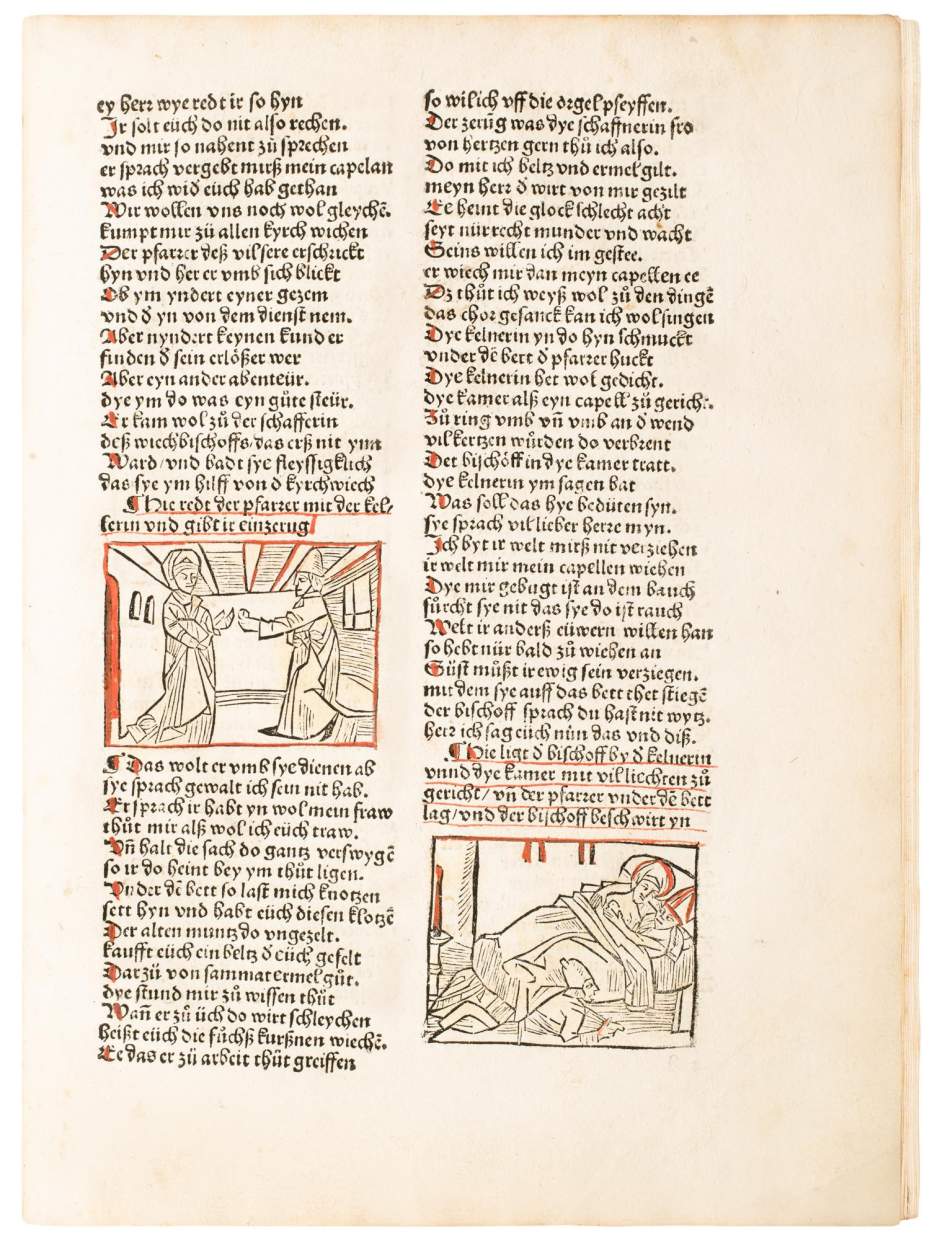 ey herr wye redt ir so hyn
Ir solt eüch do nit also rechen.
vnd mir so nahent zů sprechen
er sprach vergebt mirß mein capelan
was ich wid̄ eüch hab gethan
Wir wollen vns noch wol gleychē.
kumpt mir zů allen kyrch wichen
Der pfarrer deß vil sere erschrickt
hyn vnd her er vmb sich blickt
Ob ym yndert eyner gezem
vnd d̄ yn von dem dienst nem.
Aber nyndert keynen kund er
finden d̄ sein erlößer wer
Aber eyn ander abenteür.
dye ym do was eyn gůte steür.
Er kam wol zů der schafferin
deß wiechbischoffs/das erß nit ynn
Ward/vnd badt sye fleyssigklich
das sye ym hilff von d̄ kyrchwiech
¶ Hie redt der pfarrer mit der kel/
lerin vnd gibt ir ein zerug
¶ Das wolt er vmb sye dienen ab
sye sprach gewalt ich sein nit hab.
Er sprach ir habt yn wol mein fraw
thůt mir alß wol ich eüch traw.
Vn̄ halt die sach do gantz verswygē
so ir do heint bey ym thůt ligen.
Vnder dē bett so last mich knotzen
sett hyn vnd habt eüch diesen klotzē
Der alten muntz do vngezelt.
kaufft eüch ein beltz d̄ eüch gefelt
Darzů von sammat ermel gůt.
dye stund mir zů wissen thůt
Wan̄ er zů üch do wirt schleychen
heißt eüch die fůchß kurßnen wiechē.
Ee das er zů arbeit thůt greiffen
so wil ich vff die orgel pfeyffen.
Der zerūg was dye schaffnerin fro
von hertzen gern thů ich also.
Do mit ich beltz vnd ermel gilt.
meyn herr d̄ wirt von mir gezilt
Ee heint die glock schlecht acht
seyt nür recht munder vnd wacht
Seins willen ich im gestee.
er wiech mir dan meyn capellen ee
Dz thůt ich weyß wol zů den dingē
das chor gesanck kan ich wol singen
Dye kelnerin yn do hyn schmuckt
vnder dē bett d̄ pfarrer huckt
Dye kelnerin het wol gedicht.
dye kamer alß eyn capell zů gericht.
Zů ring vmb vn̄ vmb an d̄ wend
vil kertzen wůrden do verbrent
Der bischoff in dye kamer tratt.
dye kelnerin ym sagen bat
Was soll das hye bedüten syn.
sye sprach vil lieber herre myn.
Ich byt ir welt mirß nit verziehen
ir welt mir mein capellen wiehen
Dye mir gebugt ist an dem bauch
fürcht sye nit das sye do ist rauch
Welt ir anderß eüwern willen han
so hebt nür bald zů wiehen an
Süst můßt ir ewig sein verziegen.
mit dem sye auff das bett thet stiegē
der bischoff sprach du hast nit wytz.
herr ich sag eüch nůn das vnd diß.
¶ Hie ligt d̄ bischoff by d̄ kelnerin
vnnd dye kamer mit vil liechten zů
gericht/vn̄ der pfarrer vnder dē bett
lag/vnd der bischoff beschwirt yn